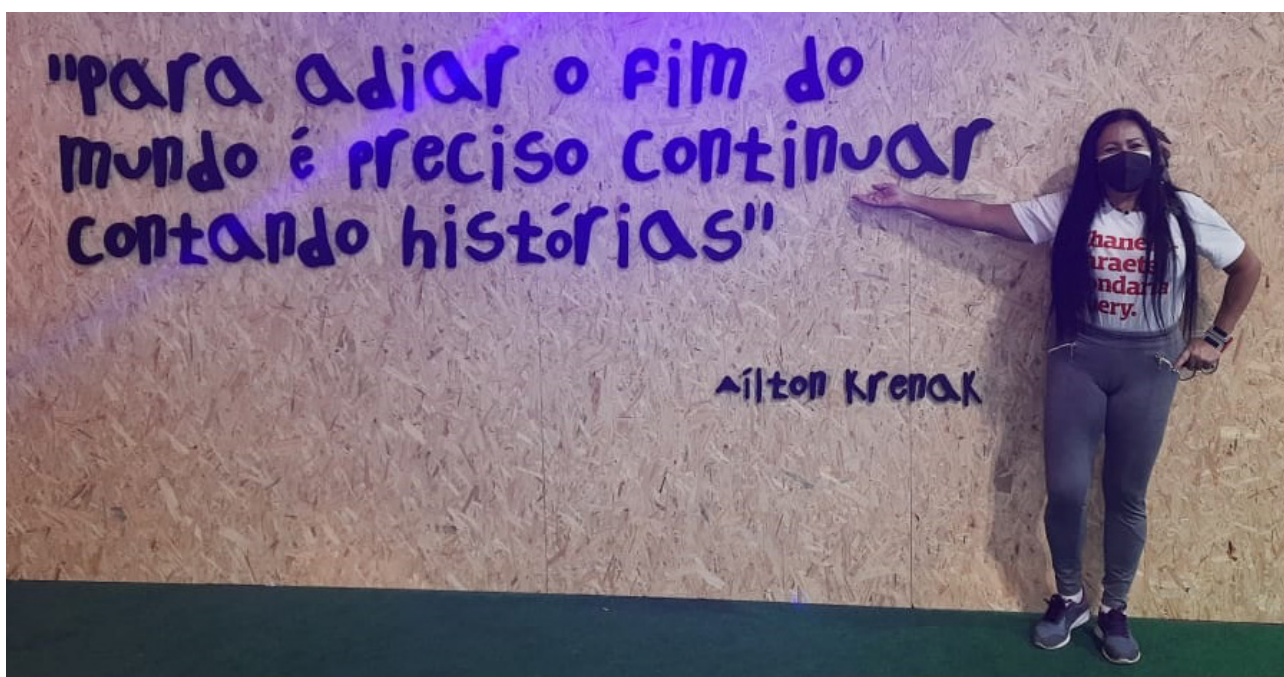 "para adiar o fim do
mundo é preciso continuar
contando histórias"
Aílton Krenak